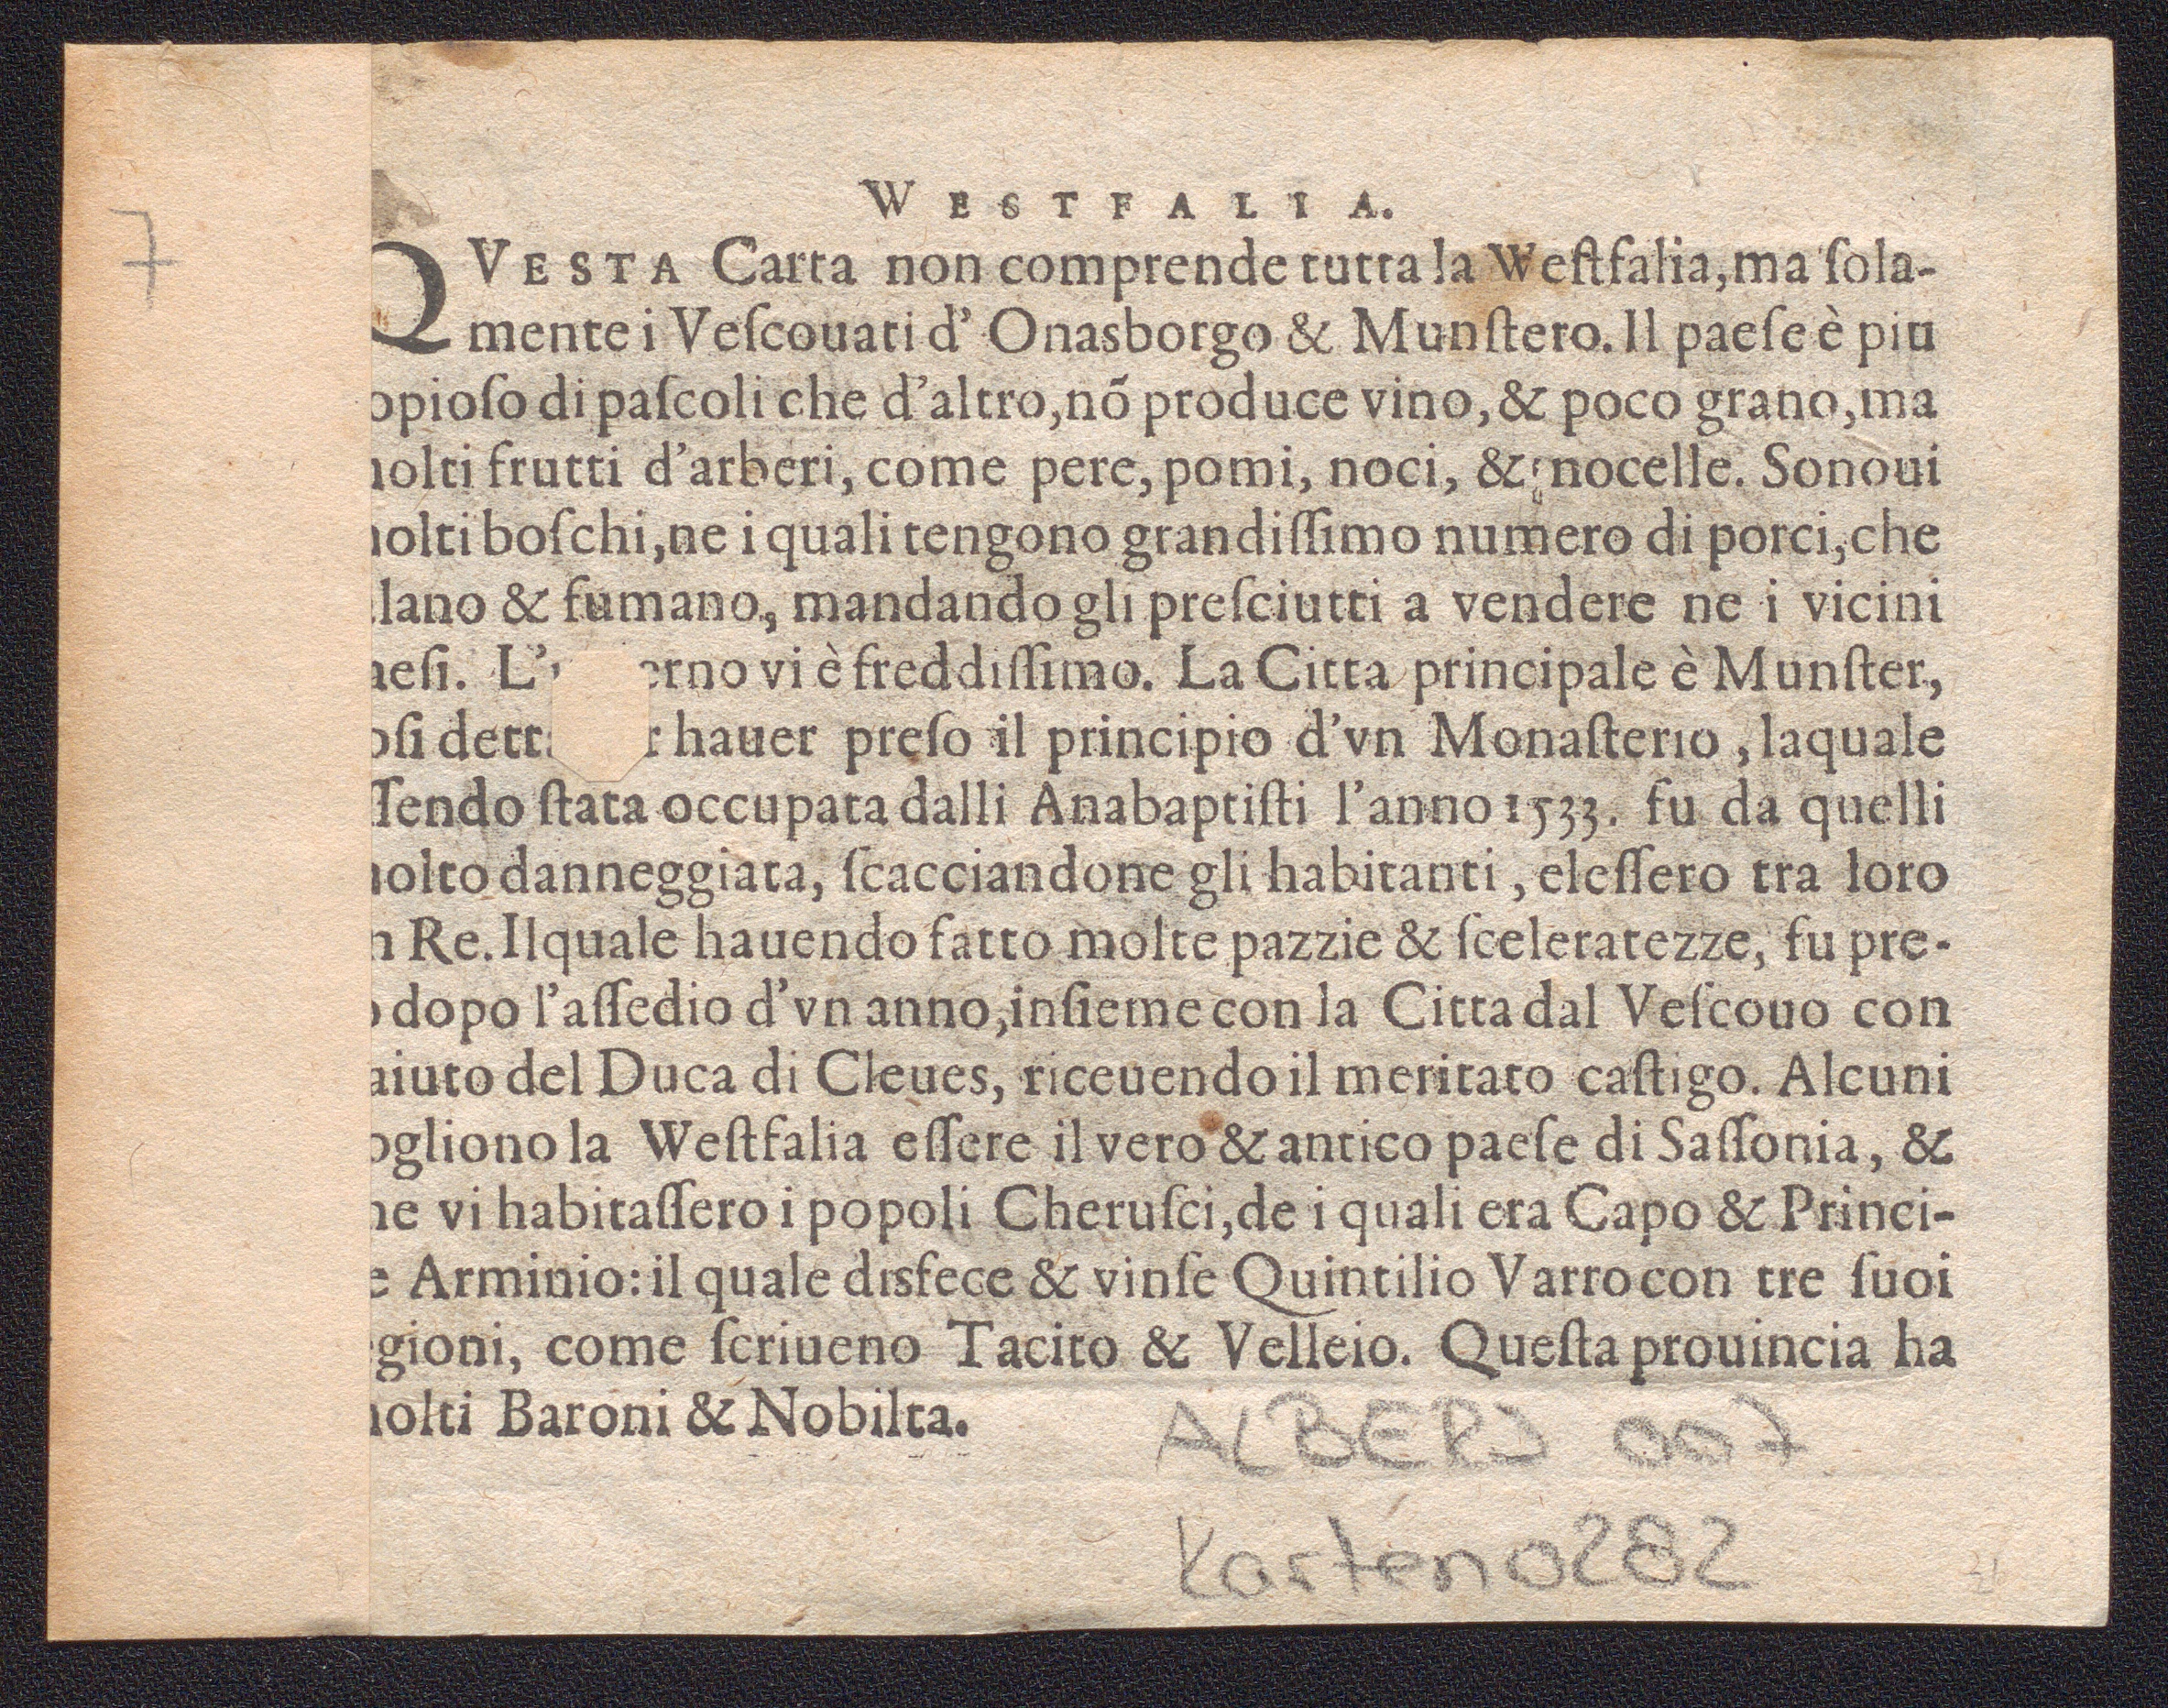 WESTFALIA.
QVESTA Carta non comprende tutta la Weſtfalia, ma ſola-
mente i Veſcouati d' Onasborgo & Munſtero. Il paeſe è piu
opioſo di paſcoli che d'altro, nõ produce vino, & poco grano, ma
olti frutti d'arberi, come pere, pomi, noci, & nocelle. Sonoui
olti boſchi, ne i quali tengono grandiſſimo numero di porci, che
lano & fumano, mandando gli preſciutti a vendere ne i vicini
aeſi. L' erno vi è freddiſſimo. La Citta principale è Munſter,
oſi dett r hauer preſo il principio d'vn Monaſterio, laquale
ſſendo ſtata occupata dalli Anabaptiſti l'anno 1533. fu da quelli
olto danneggiata, ſcacciandone gli habitanti, eleſſero tra loro
n Re. Ilquale hauendo fatto molte pazzie & ſceleratezze, fu pre-
o dopo l'aſſedio d'vn anno, inſieme con la Citta dal Veſcouo con
aiuto del Duca di Cleues, riceuendo il meritato caſtigo. Alcuni
ogliono la Weſtfalia eſſere il vero & antico paeſe di Saſſonia, &
he vi habitaſſero i popoli Cheruſci, de i quali era Capo & Princi-
e Arminio: il quale disfece & vinſe Quintilio Varro con tre ſuoi
gioni, come ſcriueno Tacito & Velleio. Queſta prouincia ha
olti Baroni & Nobilta.
7
ALBERJ 007
Karten0282